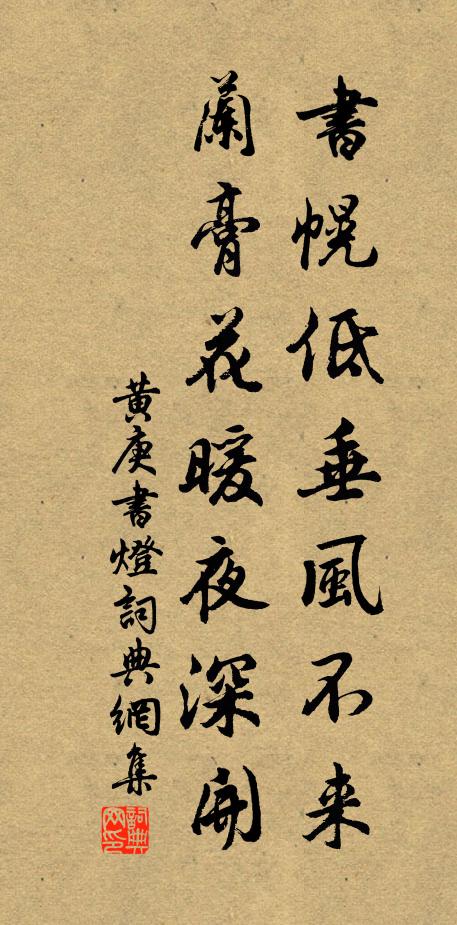 書幌低垂風不来
蘭膏花暖夜深開
黄庚書燈詞典網集
詞典网印